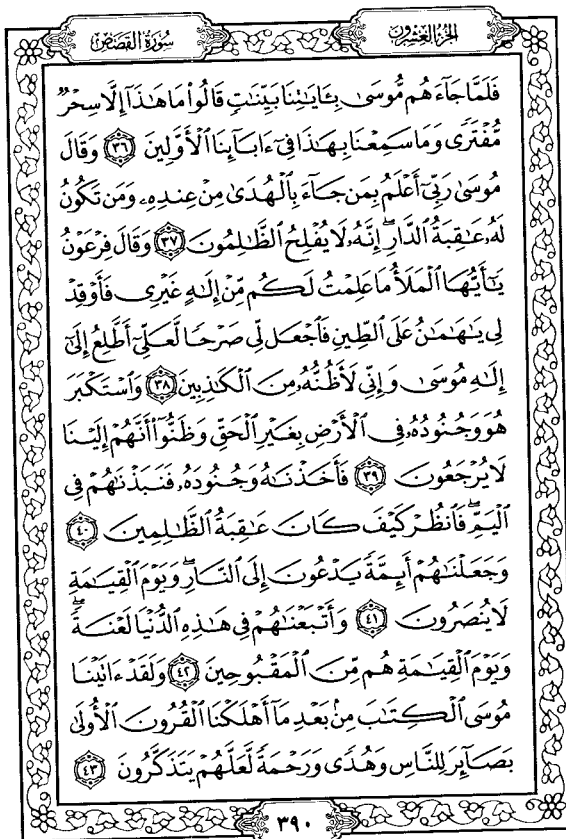 الجزء العشرون
سورة القصص
فَلَمَّا جَآءَهُم مُّوسَىٰ بِـَٔايَٰتِنَا بَيِّنَٰتٖ قَالُوا۟ مَا هَٰذَآ إِلَّا سِحۡرٞ
مُّفۡتَرٗى وَمَا سَمِعۡنَا بِهَٰذَا فِيٓ ءَابَآئِنَا ٱلۡأَوَّلِينَ ٣٦ وَقَالَ
مُوسَىٰ رَبِّيٓ أَعۡلَمُ بِمَن جَآءَ بِٱلۡهُدَىٰ مِنۡ عِندِهِۦ وَمَن تَكُونُ
لَهُۥ عَٰقِبَةُ ٱلدَّارِۖ إِنَّهُۥ لَا يُفۡلِحُ ٱلظَّٰلِمُونَ ٣٧ وَقَالَ فِرۡعَوۡنُ
يَٰٓأَيُّهَا ٱلۡمَلَأُ مَا عَلِمۡتُ لَكُم مِّنۡ إِلَٰهٍ غَيۡرِي فَأَوۡقِدۡ
لِي يَٰهَٰمَٰنُ عَلَى ٱلطِّينِ فَٱجۡعَل لِّي صَرۡحٗا لَّعَلِّيٓ أَطَّلِعُ إِلَىٰٓ
إِلَٰهِ مُوسَىٰ وَإِنِّي لَأَظُنُّهُۥ مِنَ ٱلۡكَٰذِبِينَ ٣٨ وَٱسۡتَكۡبَرَ
هُوَ وَجُنُودُهُۥ فِي ٱلۡأَرۡضِ بِغَيۡرِ ٱلۡحَقِّ وَظَنُّوٓا۟ أَنَّهُمۡ إِلَيۡنَا
لَا يُرۡجَعُونَ ٣٩ فَأَخَذۡنَٰهُ وَجُنُودَهُۥ فَنَبَذۡنَٰهُمۡ فِي
ٱلۡيَمِّۖ فَٱنظُرۡ كَيۡفَ كَانَ عَٰقِبَةُ ٱلظَّٰلِمِينَ ٤٠
وَجَعَلۡنَٰهُمۡ أَئِمَّةٗ يَدۡعُونَ إِلَى ٱلنَّارِۖ وَيَوۡمَ ٱلۡقِيَٰمَةِ
لَا يُنصَرُونَ ٤١ وَأَتۡبَعۡنَٰهُمۡ فِي هَٰذِهِ ٱلدُّنۡيَا لَعۡنَةٗۖ
وَيَوۡمَ ٱلۡقِيَٰمَةِ هُم مِّنَ ٱلۡمَقۡبُوحِينَ ٤٢ وَلَقَدۡ ءَاتَيۡنَا
مُوسَى ٱلۡكِتَٰبَ مِنۢ بَعۡدِ مَآ أَهۡلَكۡنَا ٱلۡقُرُونَ ٱلۡأُولَىٰ
بَصَآئِرَ لِلنَّاسِ وَهُدٗى وَرَحۡمَةٗ لَّعَلَّهُمۡ يَتَذَكَّرُونَ ٤٣
٣٩٠